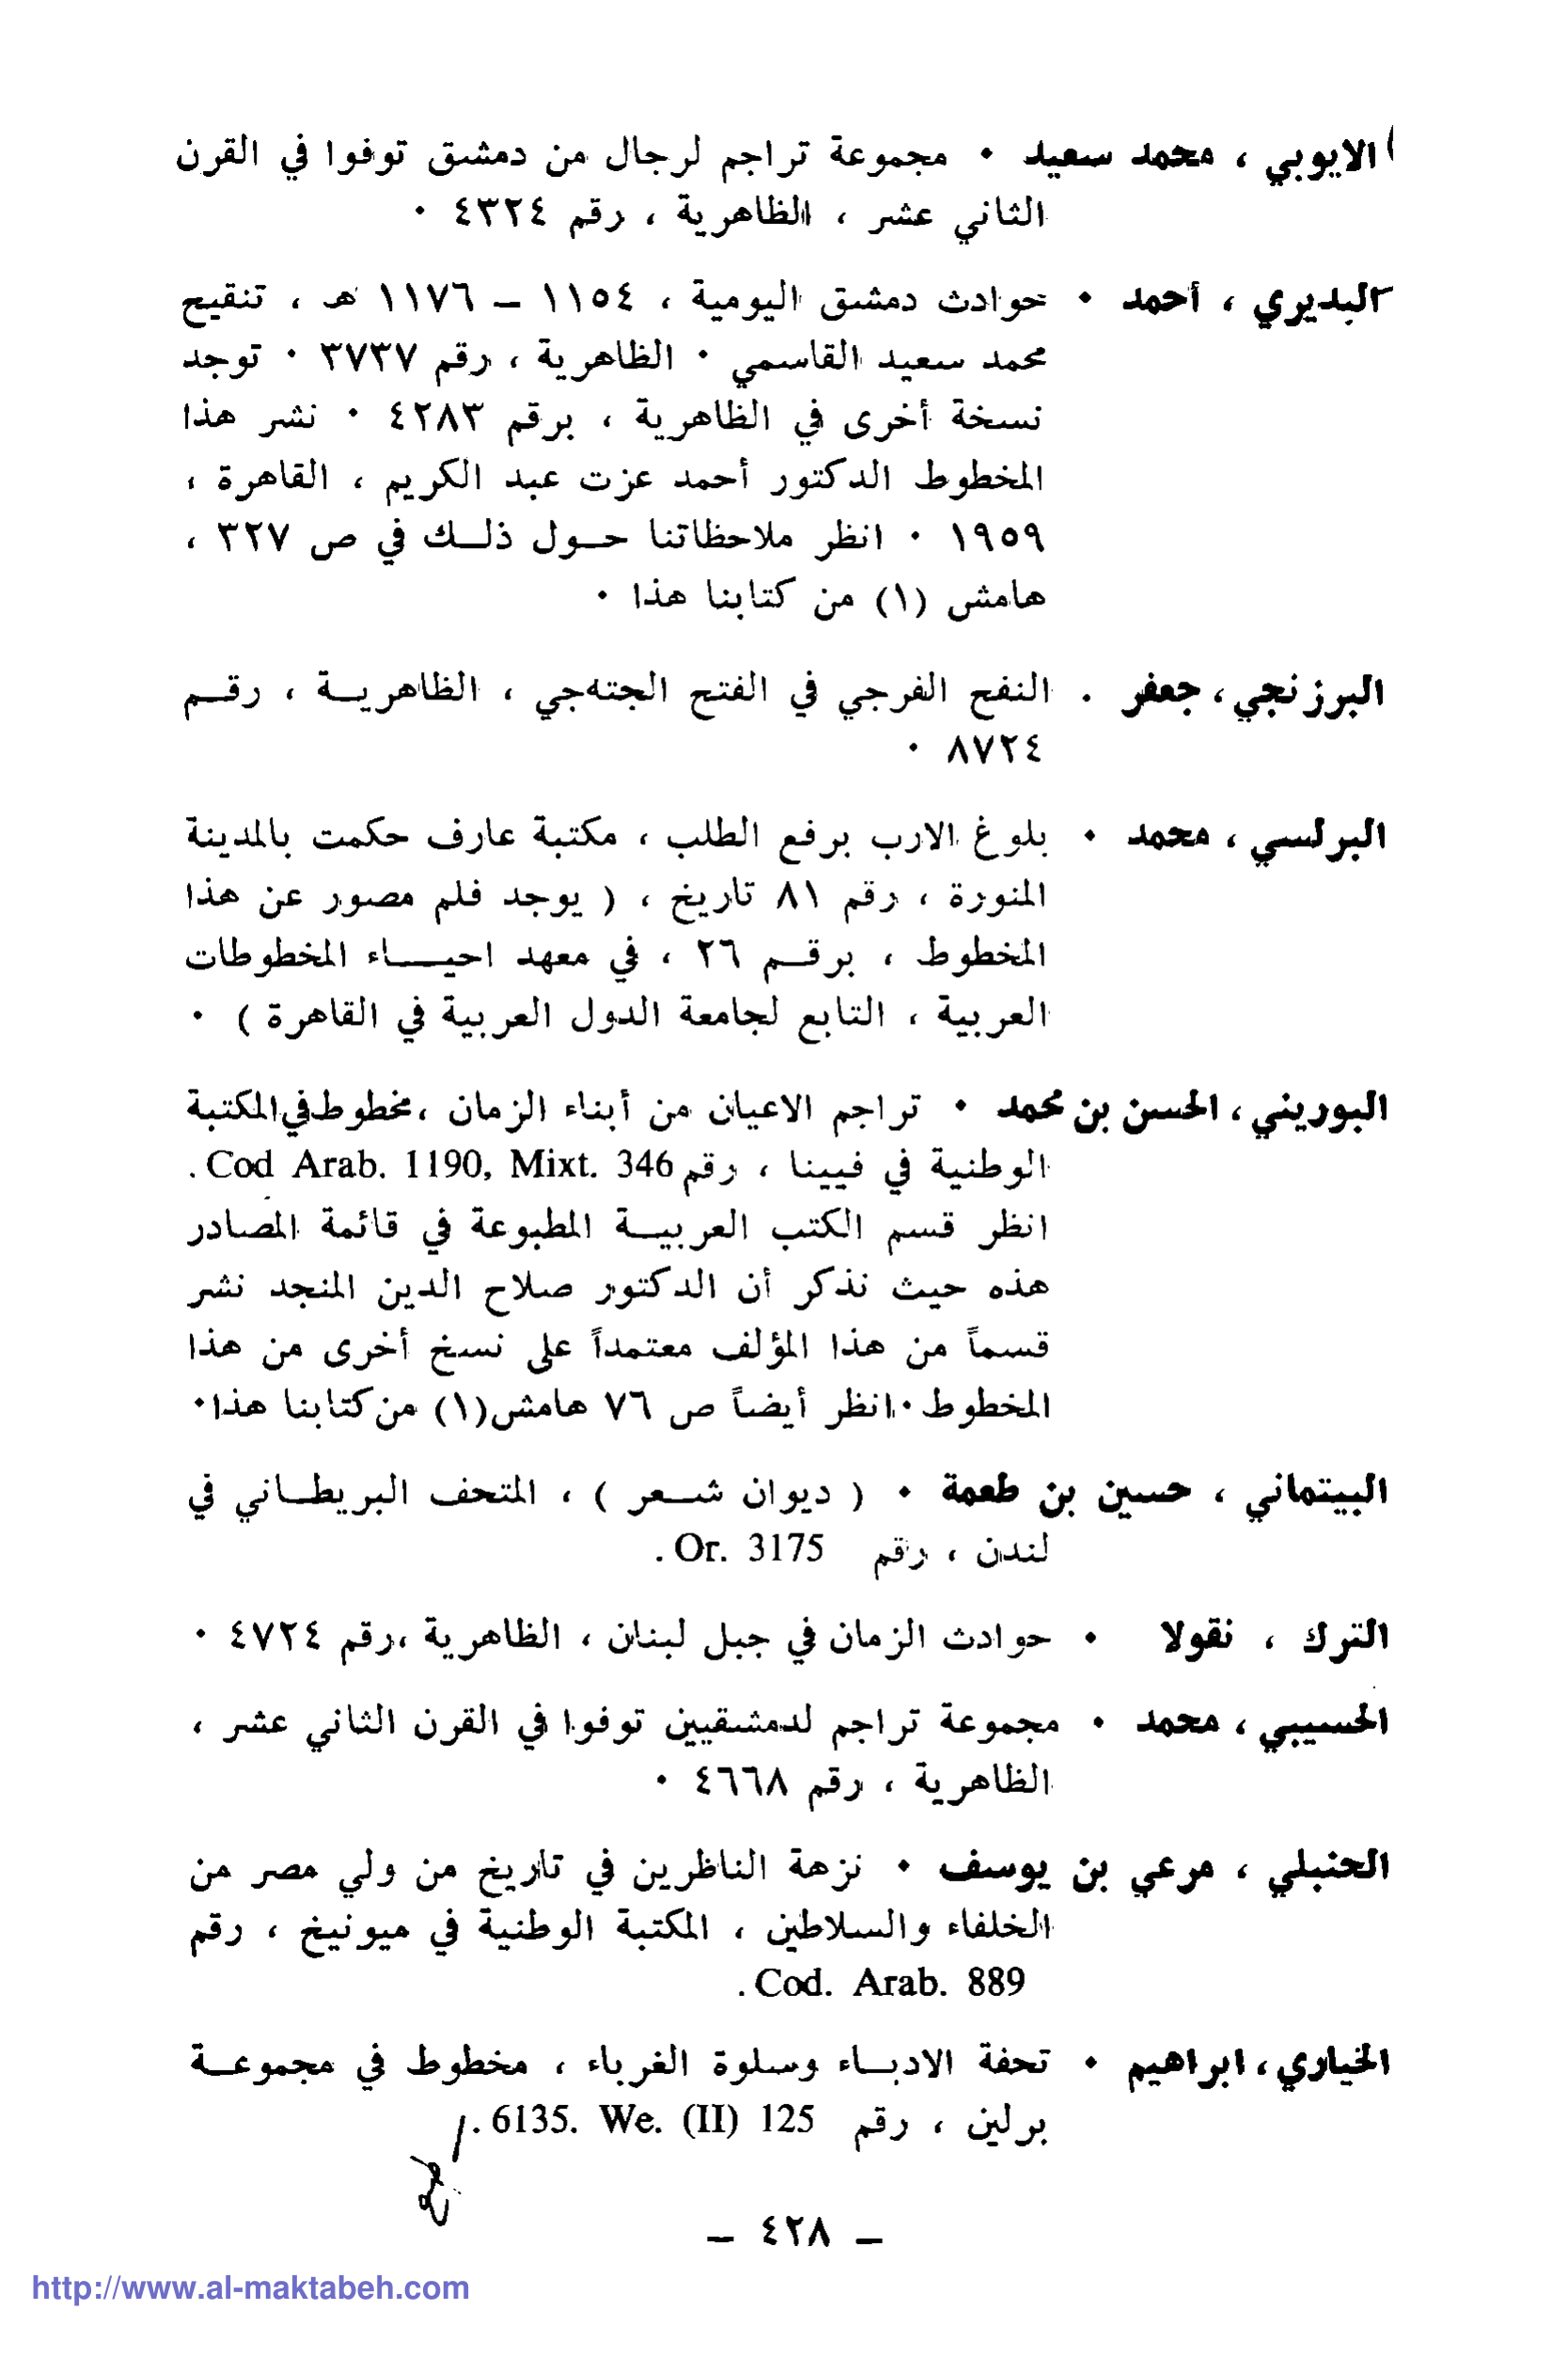 الايوبي ، محمد سعيد ٠ مجموعة تراجم لرجال من دمشق توفوا في القرن
الثاني عشر ، الظاهرية ، رقم ٤٣٢٤ ٠
البديري ، أحمد ٠ حوادث دمشق اليومية ، ١١٥٤ – ١١٧٦ هـ ، تنقيح
محمد سعيد القاسمي ٠ الظاهرية ، رقم ٣٧٣٧ ٠ توجد
نسخة أخرى في الظاهرية ، برقم ٤٢٨٣ ٠ نشر هذا
المخطوط الدكتور أحمد عزت عبد الكريم ، القاهرة ،
١٩٥٩ ٠ انظر ملاحظاتنا حـول ذلـك في ص ٣٢٧ ،
هامش (١) من كتابنا هذا ٠
البرزنجي ، جعفر . النفح الفرجي في الفتح الجتهجي ، الظاهريـة ، رقـم
٨٧٢٤ ٠
البرلسي ، محمد ٠ بلوغ الارب برفع الطلب ، مكتبة عارف حكمت بالمدينة
المنورة ، رقم ٨١ تاريخ ، ( يوجد فلم مصور عن هذا
المخطوط ، برقـم ٢٦ ، في معهد احيـاء المخطوطات
العربية ، التابع لجامعة الدول العربية في القاهرة ) ٠
البوريني ، الحسن بن محمد ٠ تراجم الاعيان من أبناء الزمان ، مخطوط في المكتبة
الوطنية في فيينا ، رقم Cod Arab. 1190, Mixt. 346 .
انظر قسم الكتب العربيـة المطبوعة في قائمة المصادر
هذه حيث نذكر أن الدكتور صلاح الدين المنجد نشر
قسماً من هذا المؤلف معتمداً على نسخ أخرى من هذا
المخطوط ٠ انظر أيضاً ص ٧٦ هامش (١) من كتابنا هذا ٠
البيتماني ، حسين بن طعمة ٠ ( ديوان شـعر ) ، المتحف البريطـاني في
لندن ، رقم Or. 3175 .
الترك ، نقولا ٠ حوادث الزمان في جبل لبنان ، الظاهرية ، رقم ٤٧٢٤ ٠
الحسيبي ، محمد ٠ مجموعة تراجم لدمشقيين توفوا في القرن الثاني عشر ،
الظاهرية ، رقم ٤٦٦٨ ٠
الحنبلي ، مرعي بن يوسف ٠ نزهة الناظرين في تاريخ من ولي مصر من
الخلفاء والسلاطين ، المكتبة الوطنية في ميونيخ ، رقم
Cod. Arab. 889 .
الخياري ، ابراهيم ٠ تحفة الادبـاء وسلوة الغرباء ، مخطوط في مجموعـة
برلين ، رقم 6135. We. (II) 125 .
– ٤٢٨ –
http://www.al-maktabeh.com